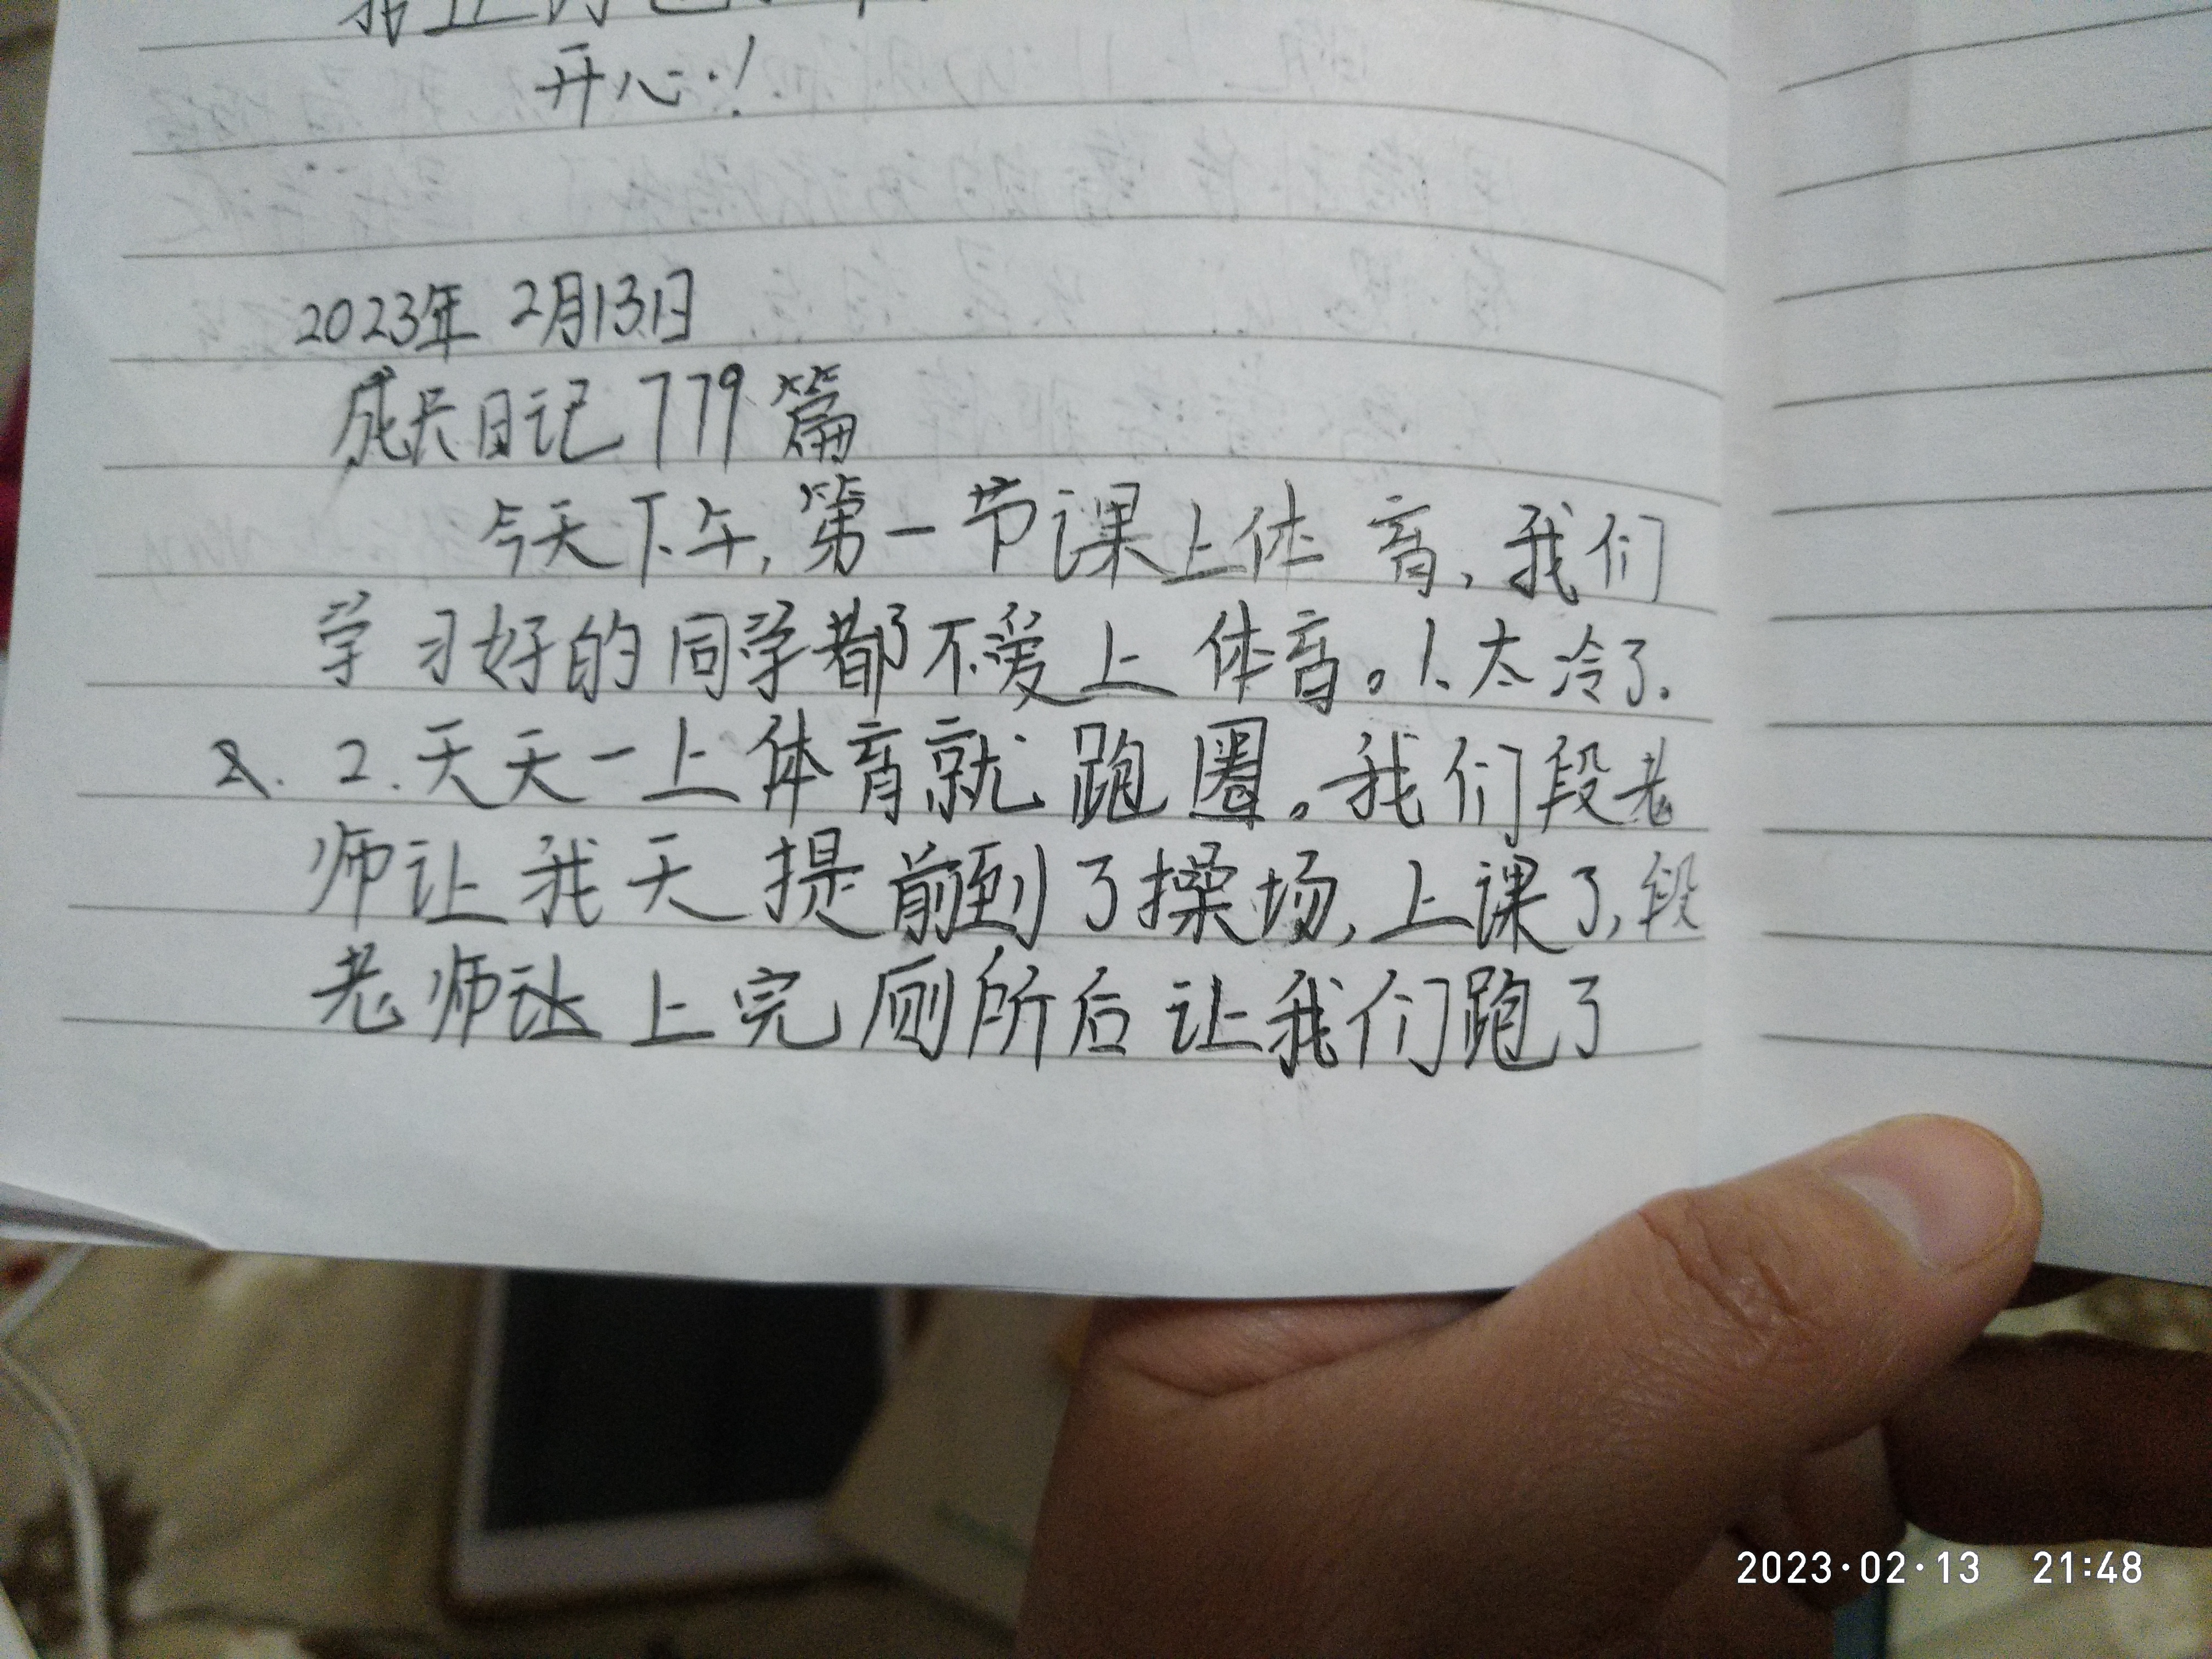 开心！
2023年 2月13日
成长日记779篇
今天下午，第一节课上体育，我们
学习好的同学都不爱上体育。1、太冷了.
2. 2.天天一上体育就跑圈。我们段老
师让我天提前到了操场，上课了，段
老师让上完厕所后让我们跑了
2023·02·13 21:48